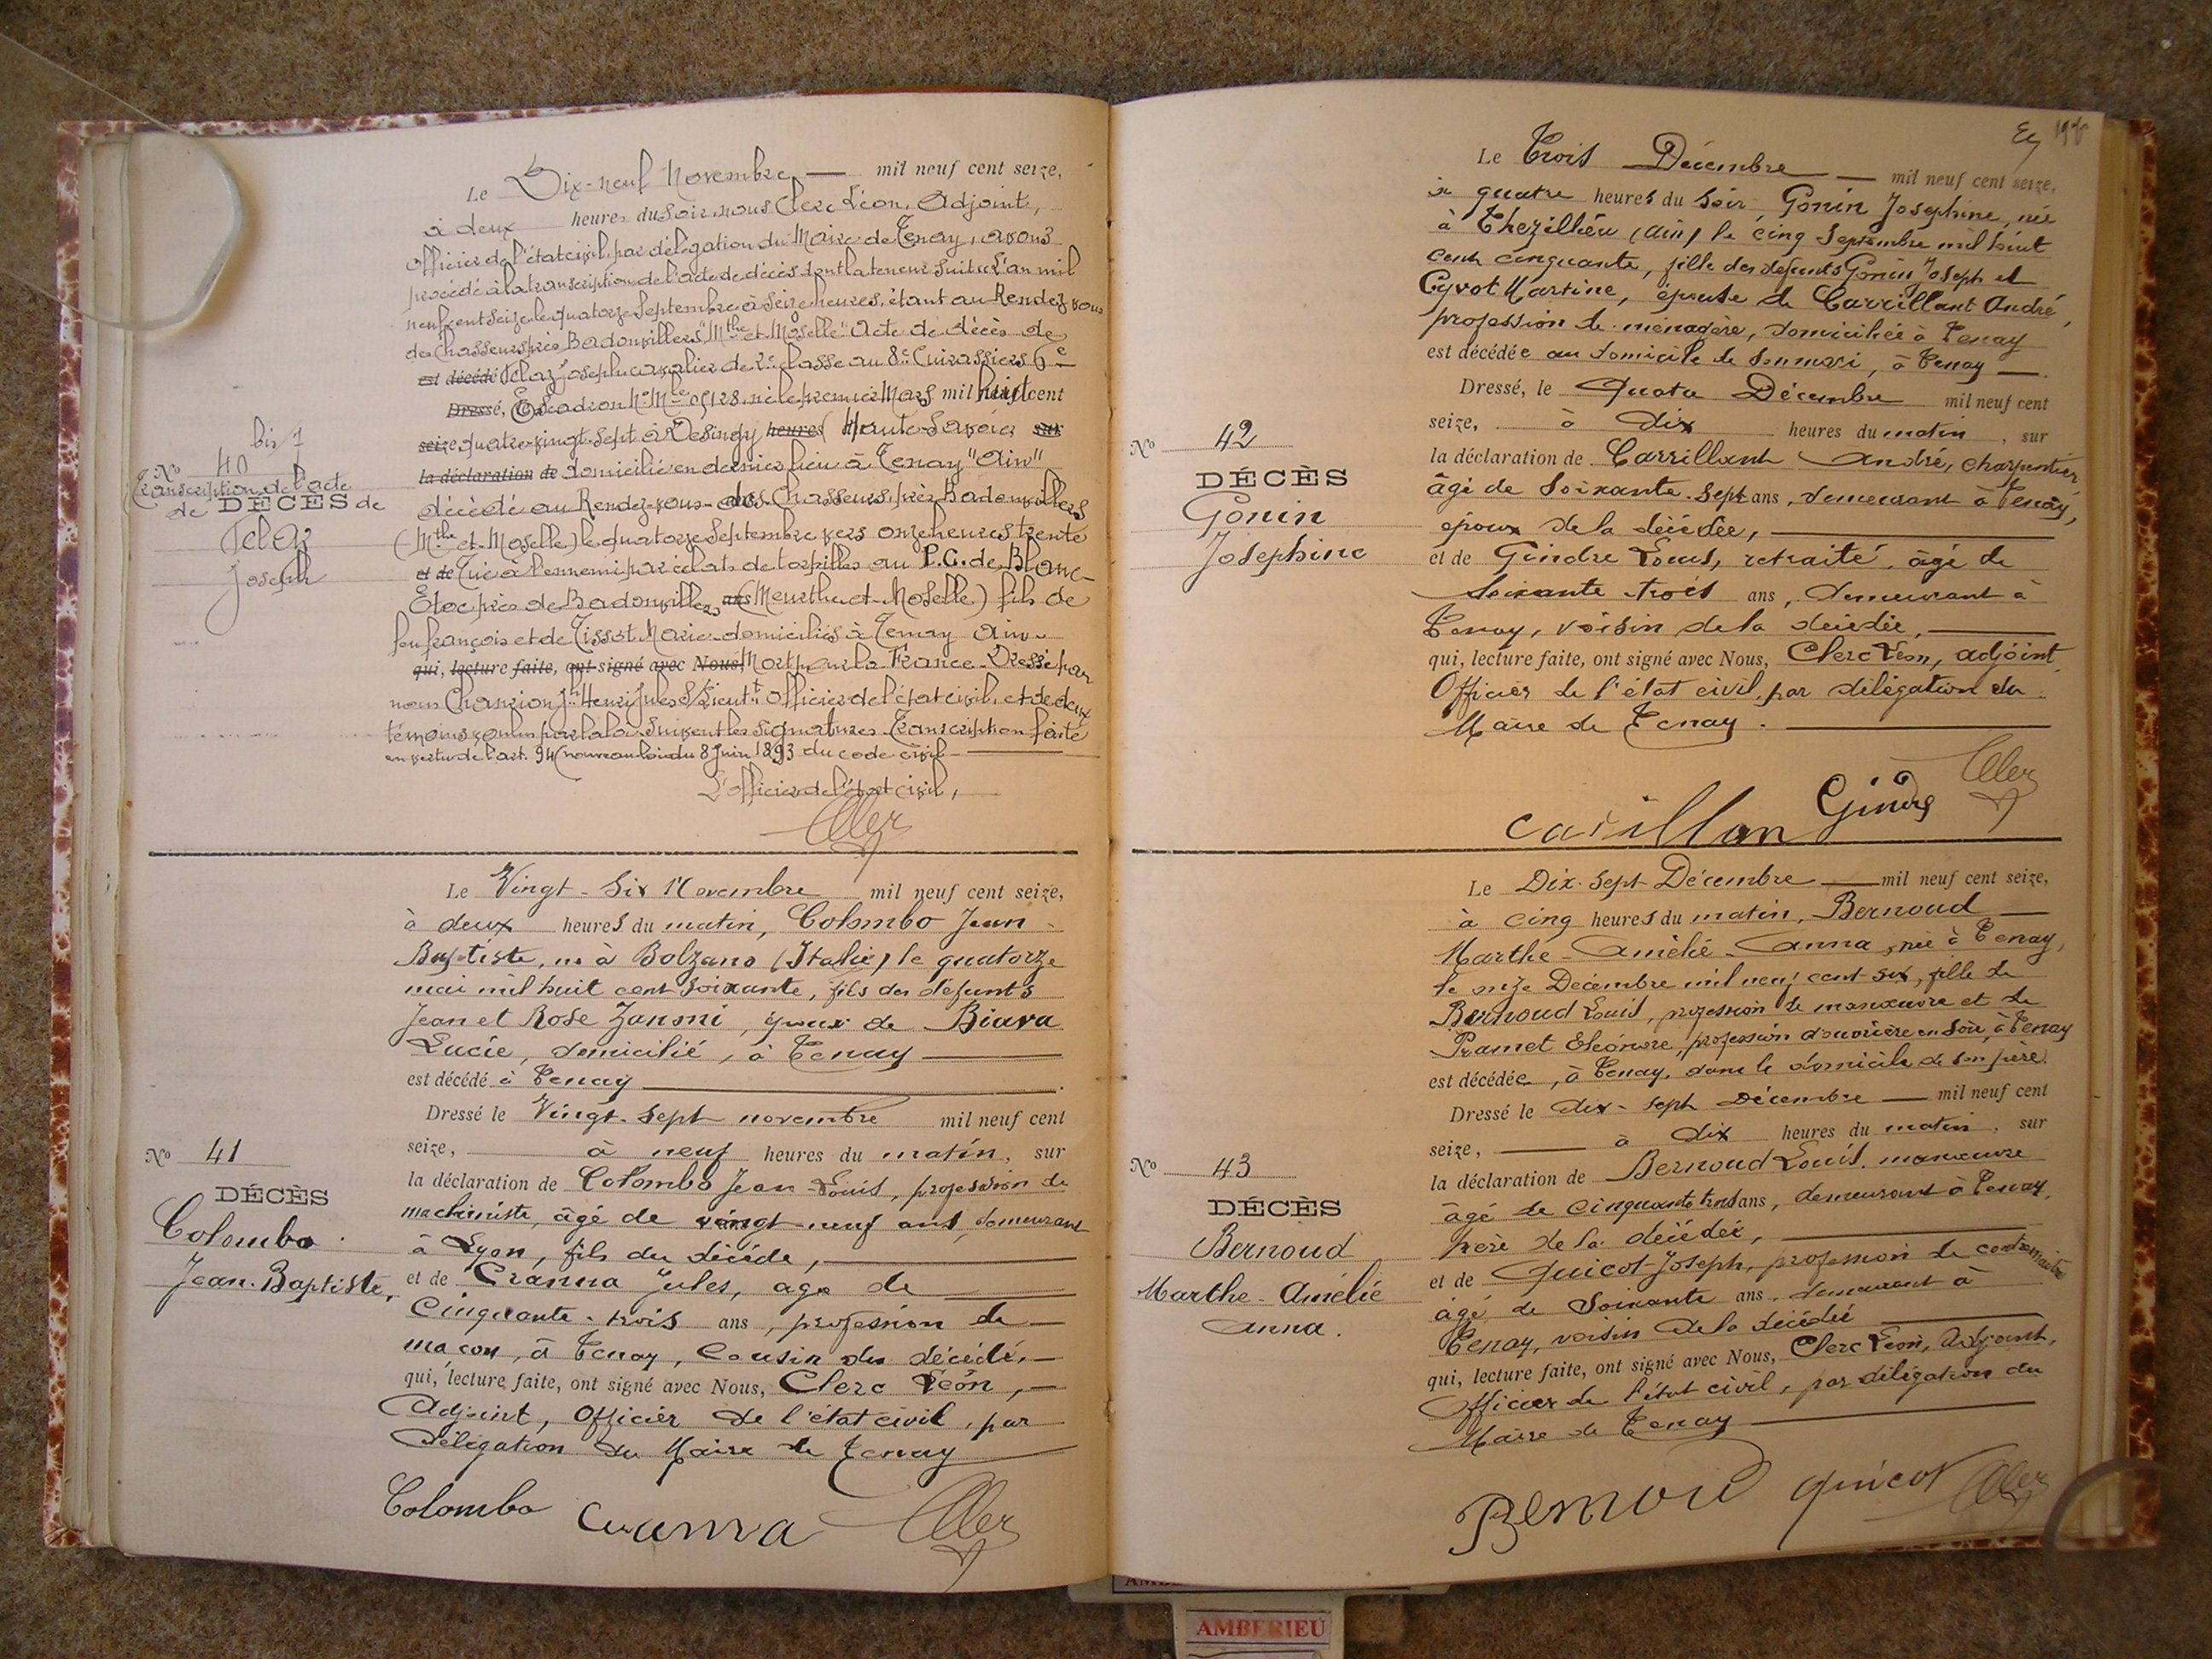 Le Dix-neuf Novembre — mil neuf cent seize,
à deux heures du soir, nous Clerc Léon, Adjoint,
officier de l'état civil par délégation du Maire de Tenay, avons
procédé à la transcription de l'acte de décès dont la teneur suit : L'an mil
neuf cent seize le quatorze Septembre à seize heures, étant au Rendez vous
des Chasseurs près Badonvillers "Mthe et Moselle" Acte de décès de
est décédé Joseph cavalier de 2e classe au 8e Cuirassiers 6e
Dressé, Escadron No Mle né le premier Mars mil huit cent
seize quatre-vingt-sept à Desingy heures (Haute-Savoie) sur
la déclaration de domicilié en dernier lieu à Tenay "Ain"
décédé au Rendez-vous des Chasseurs près Badonvillers
(Mthe et Moselle) le quatorze Septembre vers onze heures trente
et de Tué à l'ennemi par éclats de torpilles au P.C. de Blanc-
Etoc près de Badonvillers ans (Meurthe et Moselle) fils de
feu françois et de Tissot Marie domiciliés à Tenay Ain
qui, lecture faite, ont signé avec Nous, Mort pour la France - Dressé par
nous Henri Jules officier de l'état civil, et de deux
témoins Suivent les signatures Transcription faite
en vertu de l'art. 94 (nouveau loi du 8 Juin 1893 du code civil
L'officier de l'état civil,
bis 1
No 40
Transcription de l'acte
de DÉCÈS de
Joseph
Le Vingt-Six Novembre mil neuf cent seize,
à deux heures du matin, Colombo Jean
Baptiste, né à Bolzano (Italie) le quatorze
mai mil huit cent soixante, fils des défunts
Jean et Rose Zanoni, époux de Biava
Lucie, domicilié, à Tenay
est décédé à Tenay
Dressé le Vingt-Sept novembre mil neuf cent
seize, à neuf heures du matin, sur
la déclaration de Colombo Jean-Louis, profession de
machiniste, âgé de vingt-neuf ans, demeurant
à Lyon, fils du décédé,
et de Cranna Jules, age de
Cinquante-trois ans, profession de
maçon, à Tenay, Cousin du décédé,
qui, lecture faite, ont signé avec Nous, Clerc Léon,
Adjoint, Officier de l'état civil, par
délégation du Maire de Tenay
No 41
DÉCÈS
Colombo
Jean-Baptiste,
Colombo
Le Trois Décembre — mil neuf cent seize,
à quatre heures du Soir, Gonin Josephine, née
à Thezillieu (Ain) le cinq Septembre mil huit
cent cinquante, fille des défunts Gonin Joseph et
Cyvot Martine, épouse de Carrillant André,
profession de ménagère, domiciliée à Tenay
est décédée au domicile de son mari, à Tenay
Dressé, le Quatre Décembre mil neuf cent
seize, à dix heures du matin, sur
la déclaration de Carrillant André, charpentier
âgé de Soixante-Sept ans, demeurant à Tenay,
époux de la décédée,
et de Gindre Louis, retraité, âgé de
Soixante-trois ans, demeurant à
Tenay, voisin de la décédée,
qui, lecture faite, ont signé avec Nous, Clerc Léon, adjoint,
Officier de l'état civil, par délégation du
Maire de Tenay.
No 42
DÉCÈS
Gonin
Josephine
carillan
Le Dix-Sept Décembre mil neuf cent seize,
à cinq heures du matin, Bernoud
Marthe-Amélie-Anna, née à Tenay,
le onze Décembre mil neuf cent six, fille de
Bernoud Louis, profession de manœuvre et de
Pramet Eléonore, profession d'ouvrière en Soie, à Tenay
est décédée, à Tenay, dans le domicile de son père.
Dressé le dix-sept Décembre — mil neuf cent
seize, à dix heures du matin, sur
la déclaration de Bernoud Louis, manœuvre
âgé de cinquante trois ans, demeurant à Tenay,
père de la décédée,
et de Quicot Joseph, profession de contremaître
âgé de Soixante ans, demeurant à
Tenay, voisin de la décédée
qui, lecture faite, ont signé avec Nous, Clerc Léon, Adjoint,
Officier de l'état civil, par délégation du
Maire de Tenay
No 43
DÉCÈS
Bernoud
Marthe-Amélie
Anna.
Bernoud Quicot
AMBERIEU